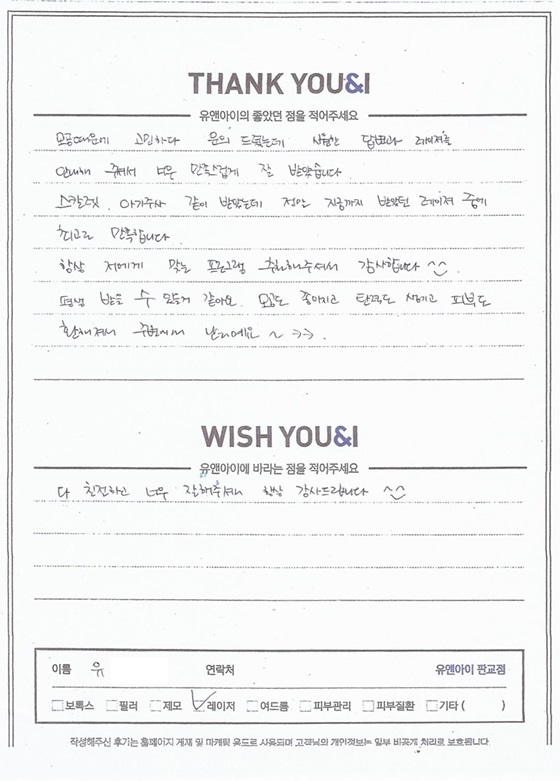 THANK YOU&I
유앤아이의 좋았던 점을 적어주세요
모공때문에 고민하다 문의 드렸는데 시원한 답변과 레이저를
안내해 주셔서 너무 만족스럽게 잘 받았습니다.
스칼렛, 아기주사 같이 받았는데 정말 지금까지 받았던 레이저 중에
최고로 만족합니다.
항상 저에게 맞는 프로그램 추천해주셔서 감사합니다 ^^.
평생 받을 수 있을거 같아요. 모공도 좋아지고 탄력도 생기고 피부도
환해져서 주변에서 난리에요~ >>.
WISH YOU&I
유앤아이에 바라는 점을 적어주세요
다 친절하고 너무 잘해주셔서 항상 감사드립니다 ^^
이름 유 연락처 유앤아이 판교점
보톡스 필러 제모 레이저 여드름 피부관리 피부질환 기타 ( )
작성해주신 후기는 홈페이지 게재 및 마케팅 용도로 사용되며 고객님의 개인정보는 일부 비공개 처리로 보호됩니다.